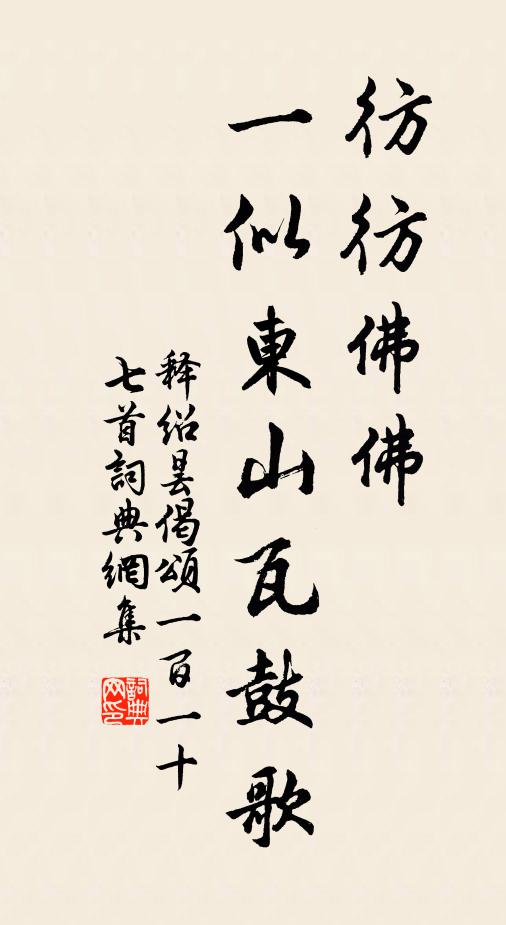 彷彷佛佛
一似東山瓦鼓歌
释绍昙偈頌一百一十
七首詞典網集
詞典网印